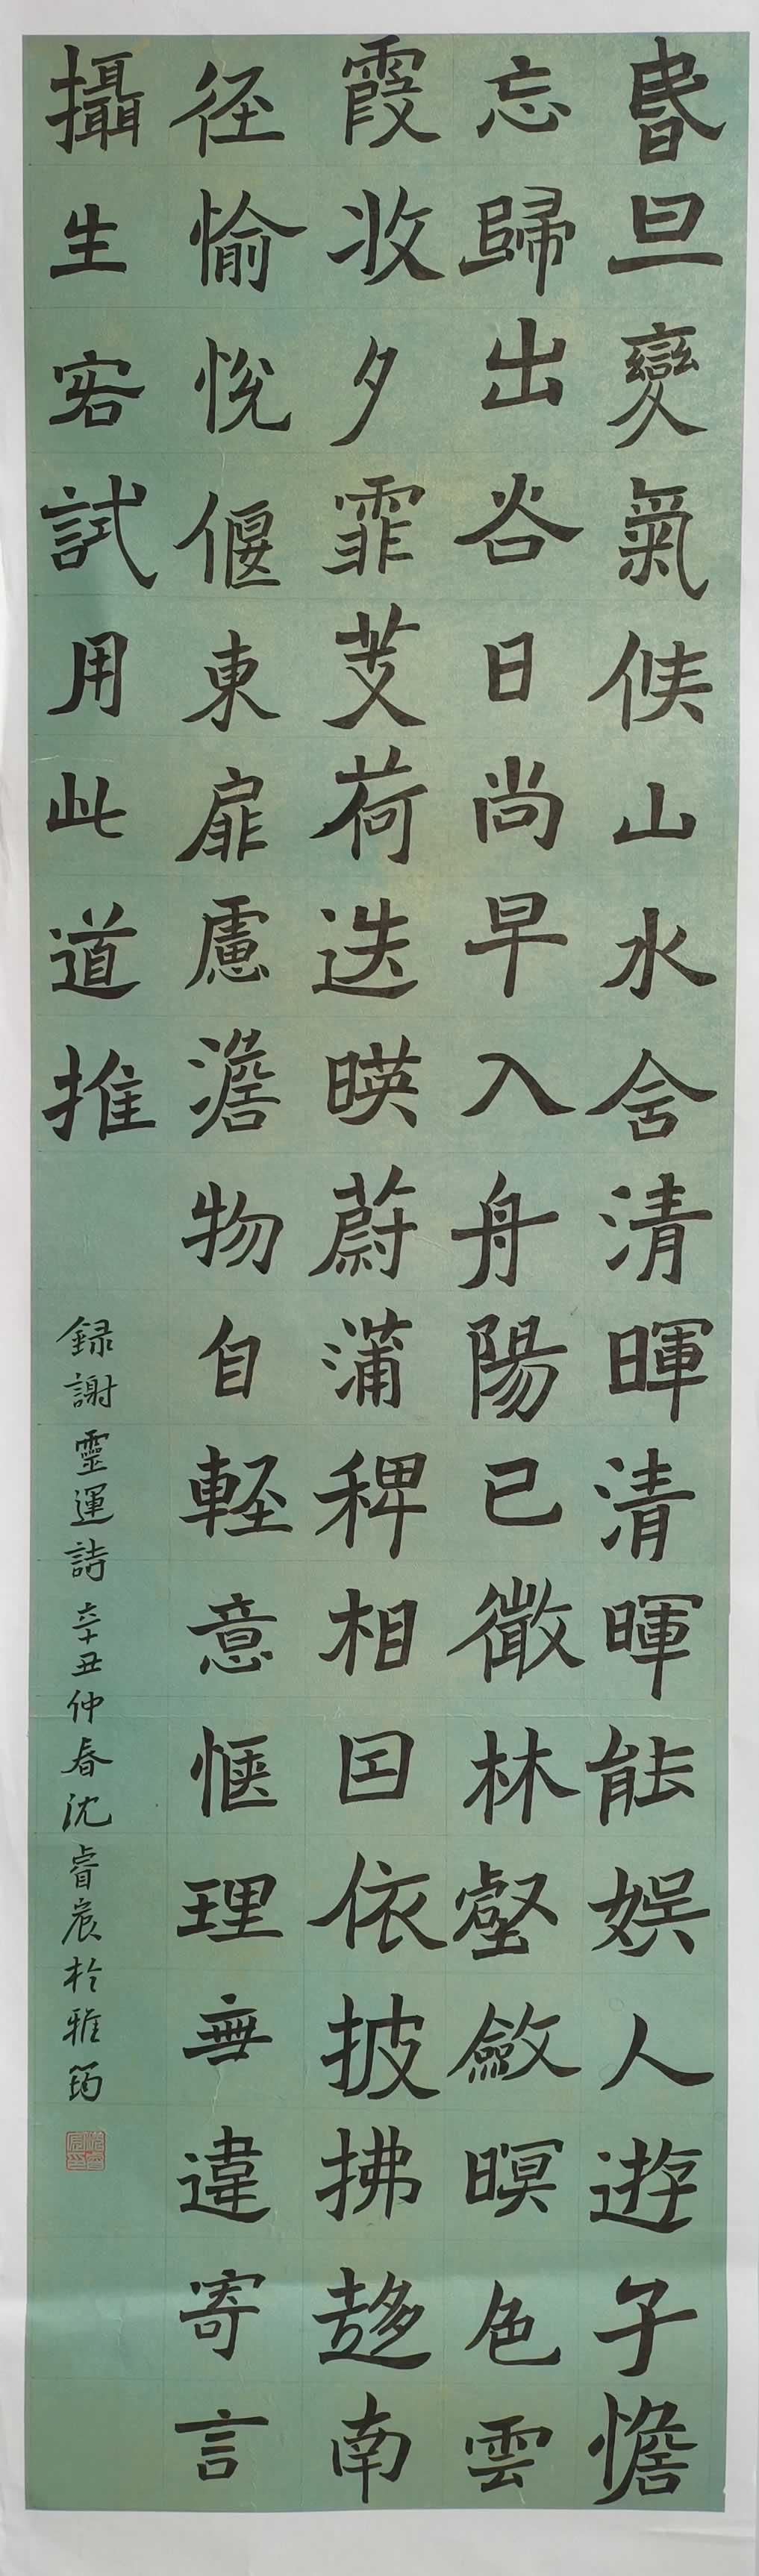 昏旦變氣候山水含清暉清暉能娛人遊子憺
忘歸出谷日尚早入舟陽已微林壑斂暝色雲
霞收夕霏芰荷迭暎蔚蒲稗相因依披拂趍南
径愉悅偃東扉慮澹物自輕意愜理無違寄言
攝生客試用此道推
録謝靈運詩辛丑仲春沈睿宸於雅筠